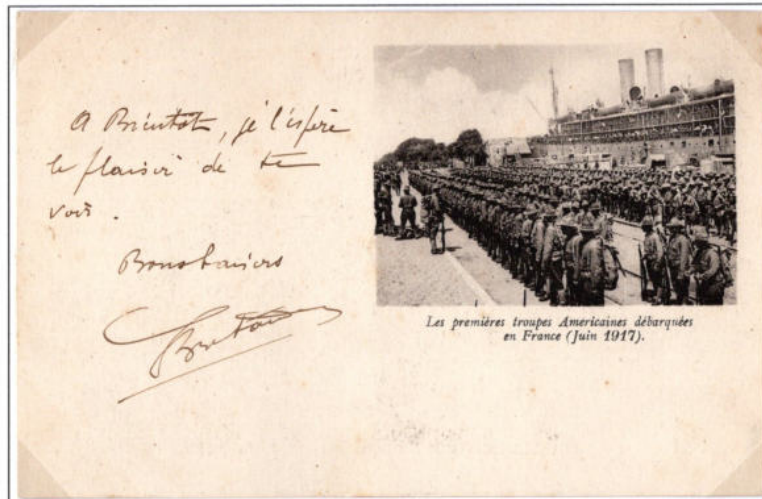 A Bientot, je l'espère
le plaisir de te
voir.
Bons baisers
Les premières troupes Americaines débarquées
en France (Juin 1917).